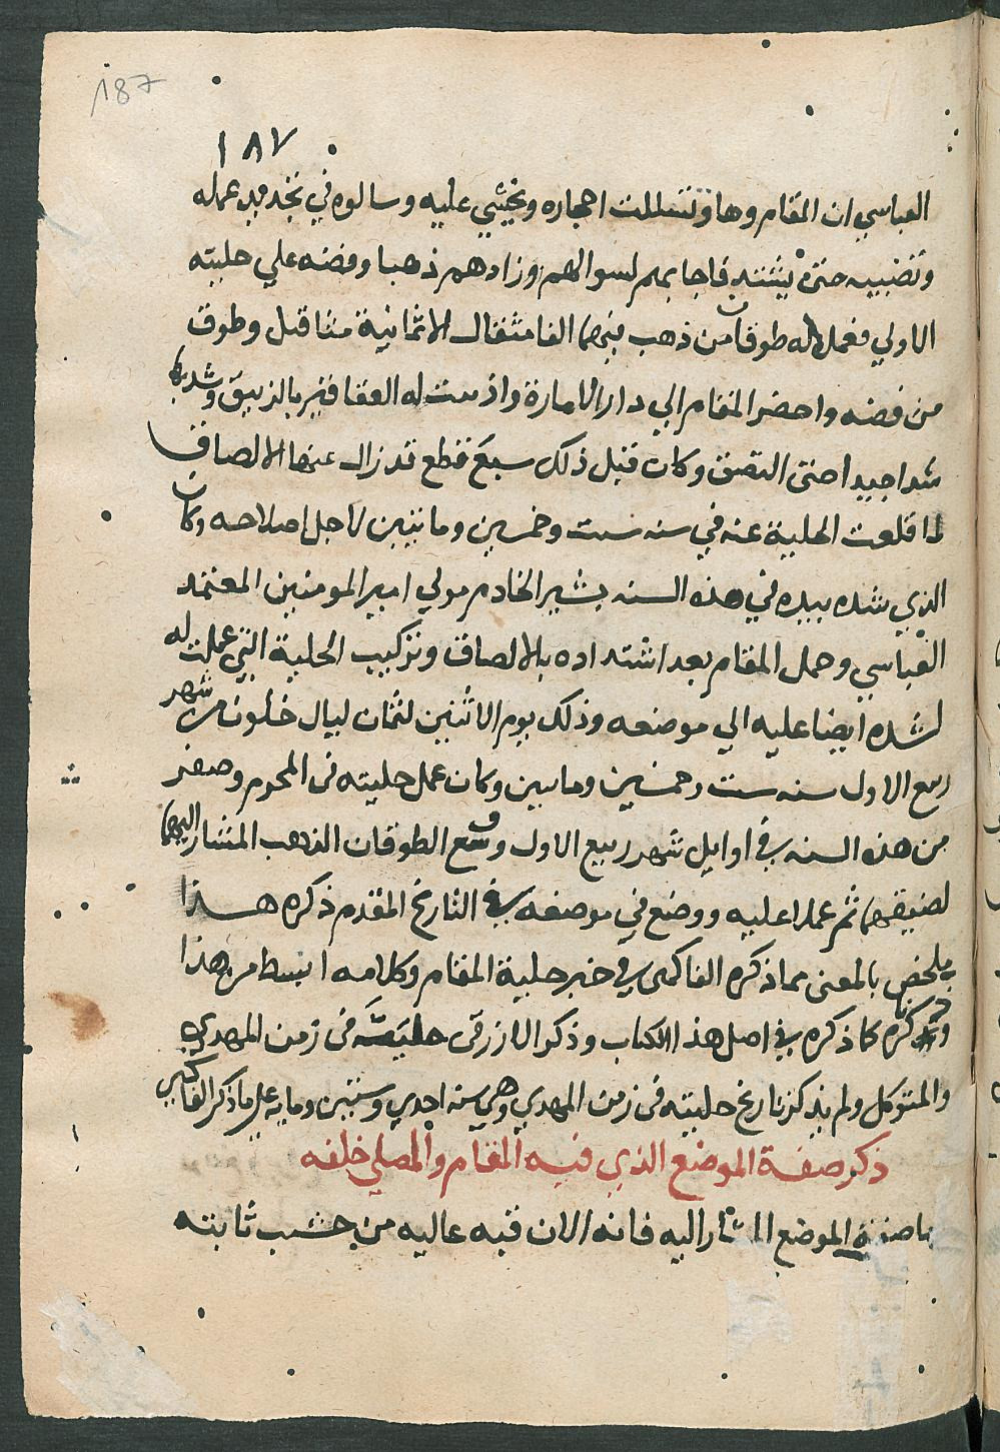 187
١٨٧
العباسي ان المقام وها وتسللت احجاره ويخشي عليه وسالوه في تجديد عمله
وتضبيبه حتى يشتد فاجابهم لسوالهم وزادهم ذهبا وفضه علي حليته
الاولي فعمل له طوقان من ذهب فيهما الفا مثقال الا ثمانية مثاقيل وطوق
من فضه واحضر المقام الي دار الامارة واذيبت له العقاقير بالزيبق وشد بها
شدا جيدا حتى التصق وكان قبل ذلك سبع قطع قد زال عنها الالصاق
لما قلعت الحلية عنه في سنه ست وخمسين وماتيين لاجل اصلاحه وكان
الذي شده بيده في هذه السنه بشير الخادم مولي امير المومنين المعتمد
العباسي وحمل المقام بعد اشتداده بالالصاق وتركيب الحلية التي عملت له
لشده ايضا عليه الي موضعه وذلك يوم الاثنين لثمان ليال خلون من شهر
ربيع الاول سنه ست وخمسين وماىىين وكان عمل حليته فى المحرم وصفر
من هذه السنه وفي اوايل شهر ربيع الاول وسع الطوقان الذهب المشار اليهما
لضيقهما ثم عملا عليه ووضع في موضعه في التاريخ المقدم ذكره هذا
ملخص بالمعنى مما ذكره الفاكهى في خبر حلية المقام وكلامه ابسط من هذا
وذكره كما ذكره في اصل هذا الكتاب وذكر الازرقى حليته فى زمن المهدي
والمتوكل ولم يذكر تاريخ حليته فى زمن المهدي وهي سنه احدي وستين ومايه علي ما ذكر الفاكهي
ذكر صفة الموضع الذي فيه المقام والمصلي خلفه
اما صفة الموضع المشار اليه فانه الان قبه عاليه من خشب ثابته